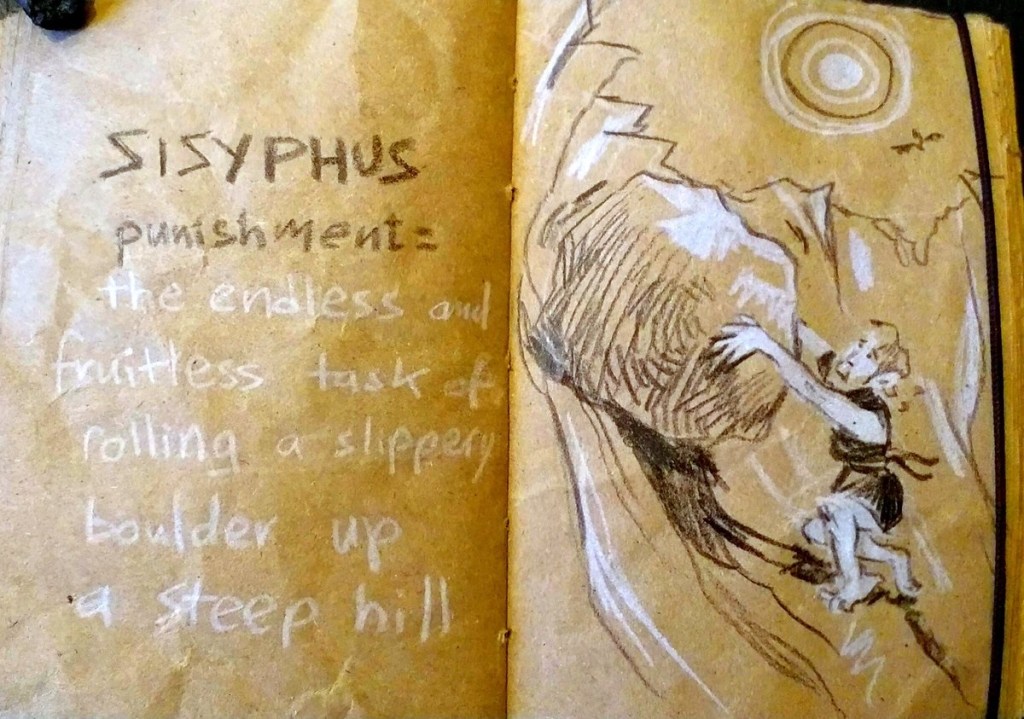 SISYPHUS
punishment=
the endless and
fruitless task of
rolling a slippery
boulder up
a steep hill